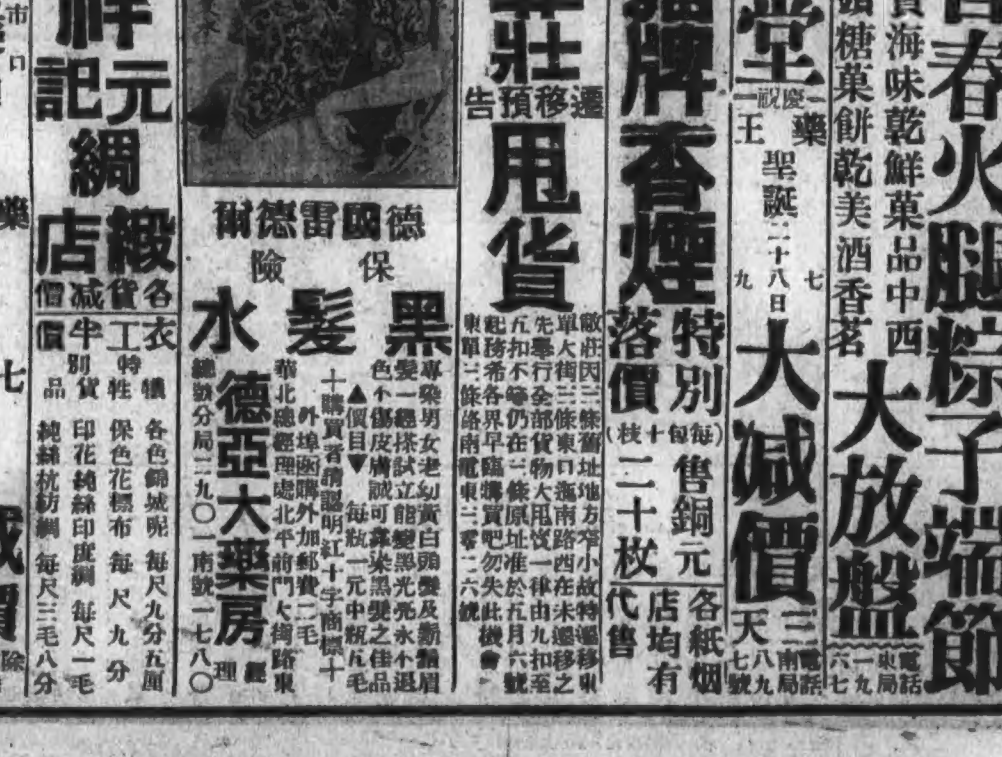 春火腿粽子端節
海味乾鮮菓品中西
糖菓餅乾美酒香茗
大放盤
電話
東局
一九
六七
堂
慶祝
藥王
聖誕二十八日
七
九
大减價
三天
電話
南局
八九
七號
牌香煙
特別
落價
(每包十枝)
售銅元
二十枚
各紙烟
店均有
代售
莊
遷移預告
甩貨
敝莊因三條舊址地方窄小故特遷移東
單大街三條東口迤南路西在未遷移之
先舉行全部貨物大甩貨一律由九扣至
五扣不等仍在三條原址准於五月六號
起務希各界早臨購買吧勿失此機會
東單三條路南電東三零二六號
德國雷德爾
保險
黑髮水
專染男女老幼黃白頭髮及鬍鬚眉
髮一經搽試立能變黑光亮永不退
色不傷皮膚誠可靠染黑髮之佳品
▲價目▼ 每瓶一元中瓶五毛
十購買者請認明紅十字商標十
外埠函購外加郵費二毛
華北總經理處北平前門大街路東
德亞大藥房
經理
總號分局二九〇一南號一七八〇
祥
元記
綢
緞店
各貨减價
衣工半價
特別
犧牲貨品
各色錦城呢 每尺九分五厘
保色花標布 每尺九分
印花純絲印度綢 每尺一毛
純絲杭紡綢 每尺三毛八分
市口
藥
七
减價
除